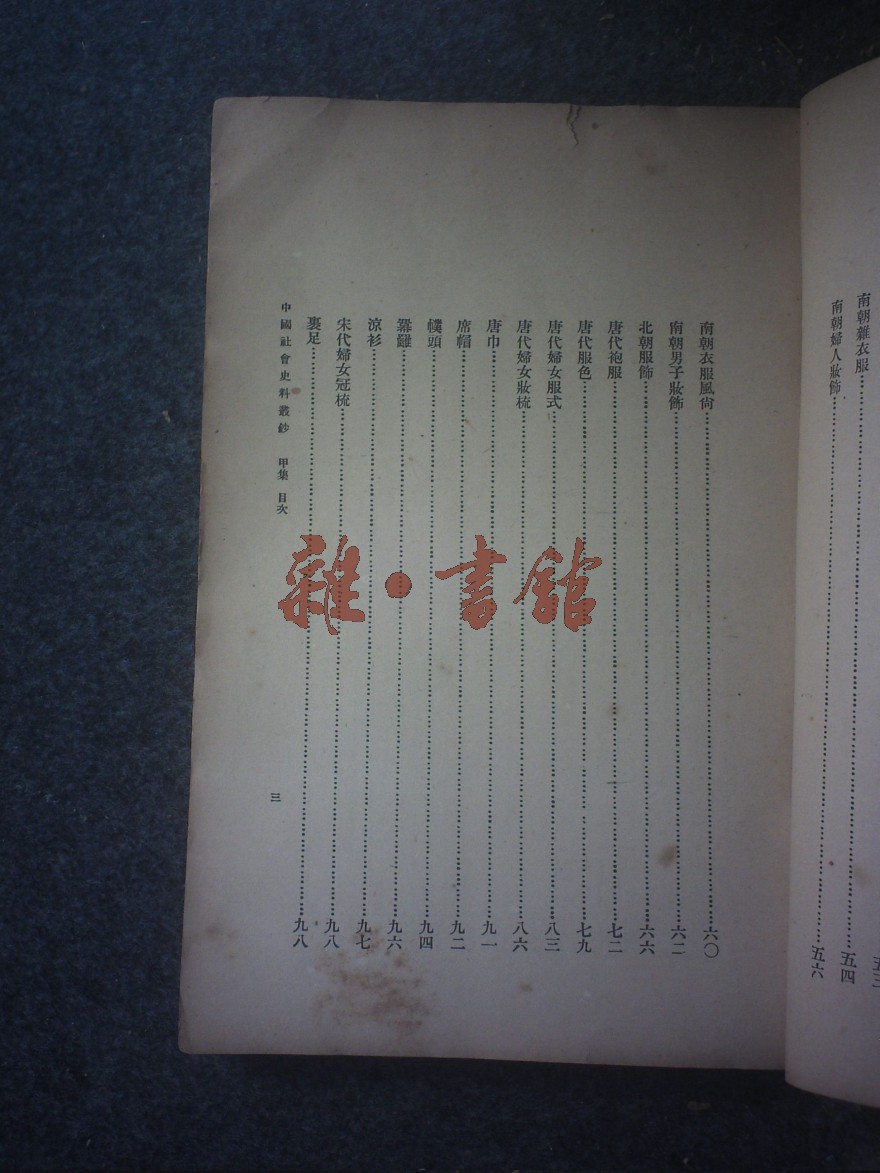 南朝雜衣服……五四
南朝婦人妝飾……五六
南朝衣服風尙……六〇
南朝男子妝飾……六二
北朝服飾……六六
唐代袍服……七二
唐代服色……七九
唐代婦女服式……八三
唐代婦女妝梳……八六
唐巾……九一
席帽……九二
幞頭……九四
羃䍦……九六
涼衫……九七
宋代婦女冠梳……九八
裹足……九八
中國社會史料叢鈔 甲集 目次
三
雜·書館